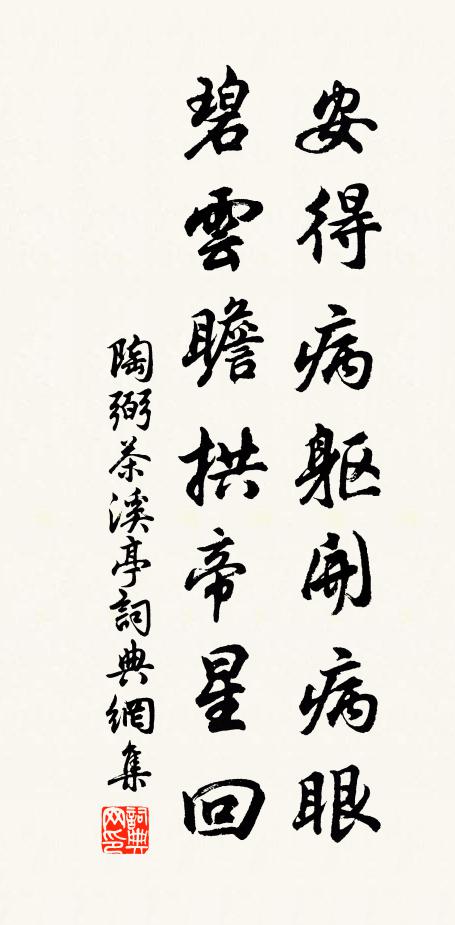 安得病躯開病眼
碧雲瞻拱帝星回
陶弼茶溪亭詞典網集
詞典网印